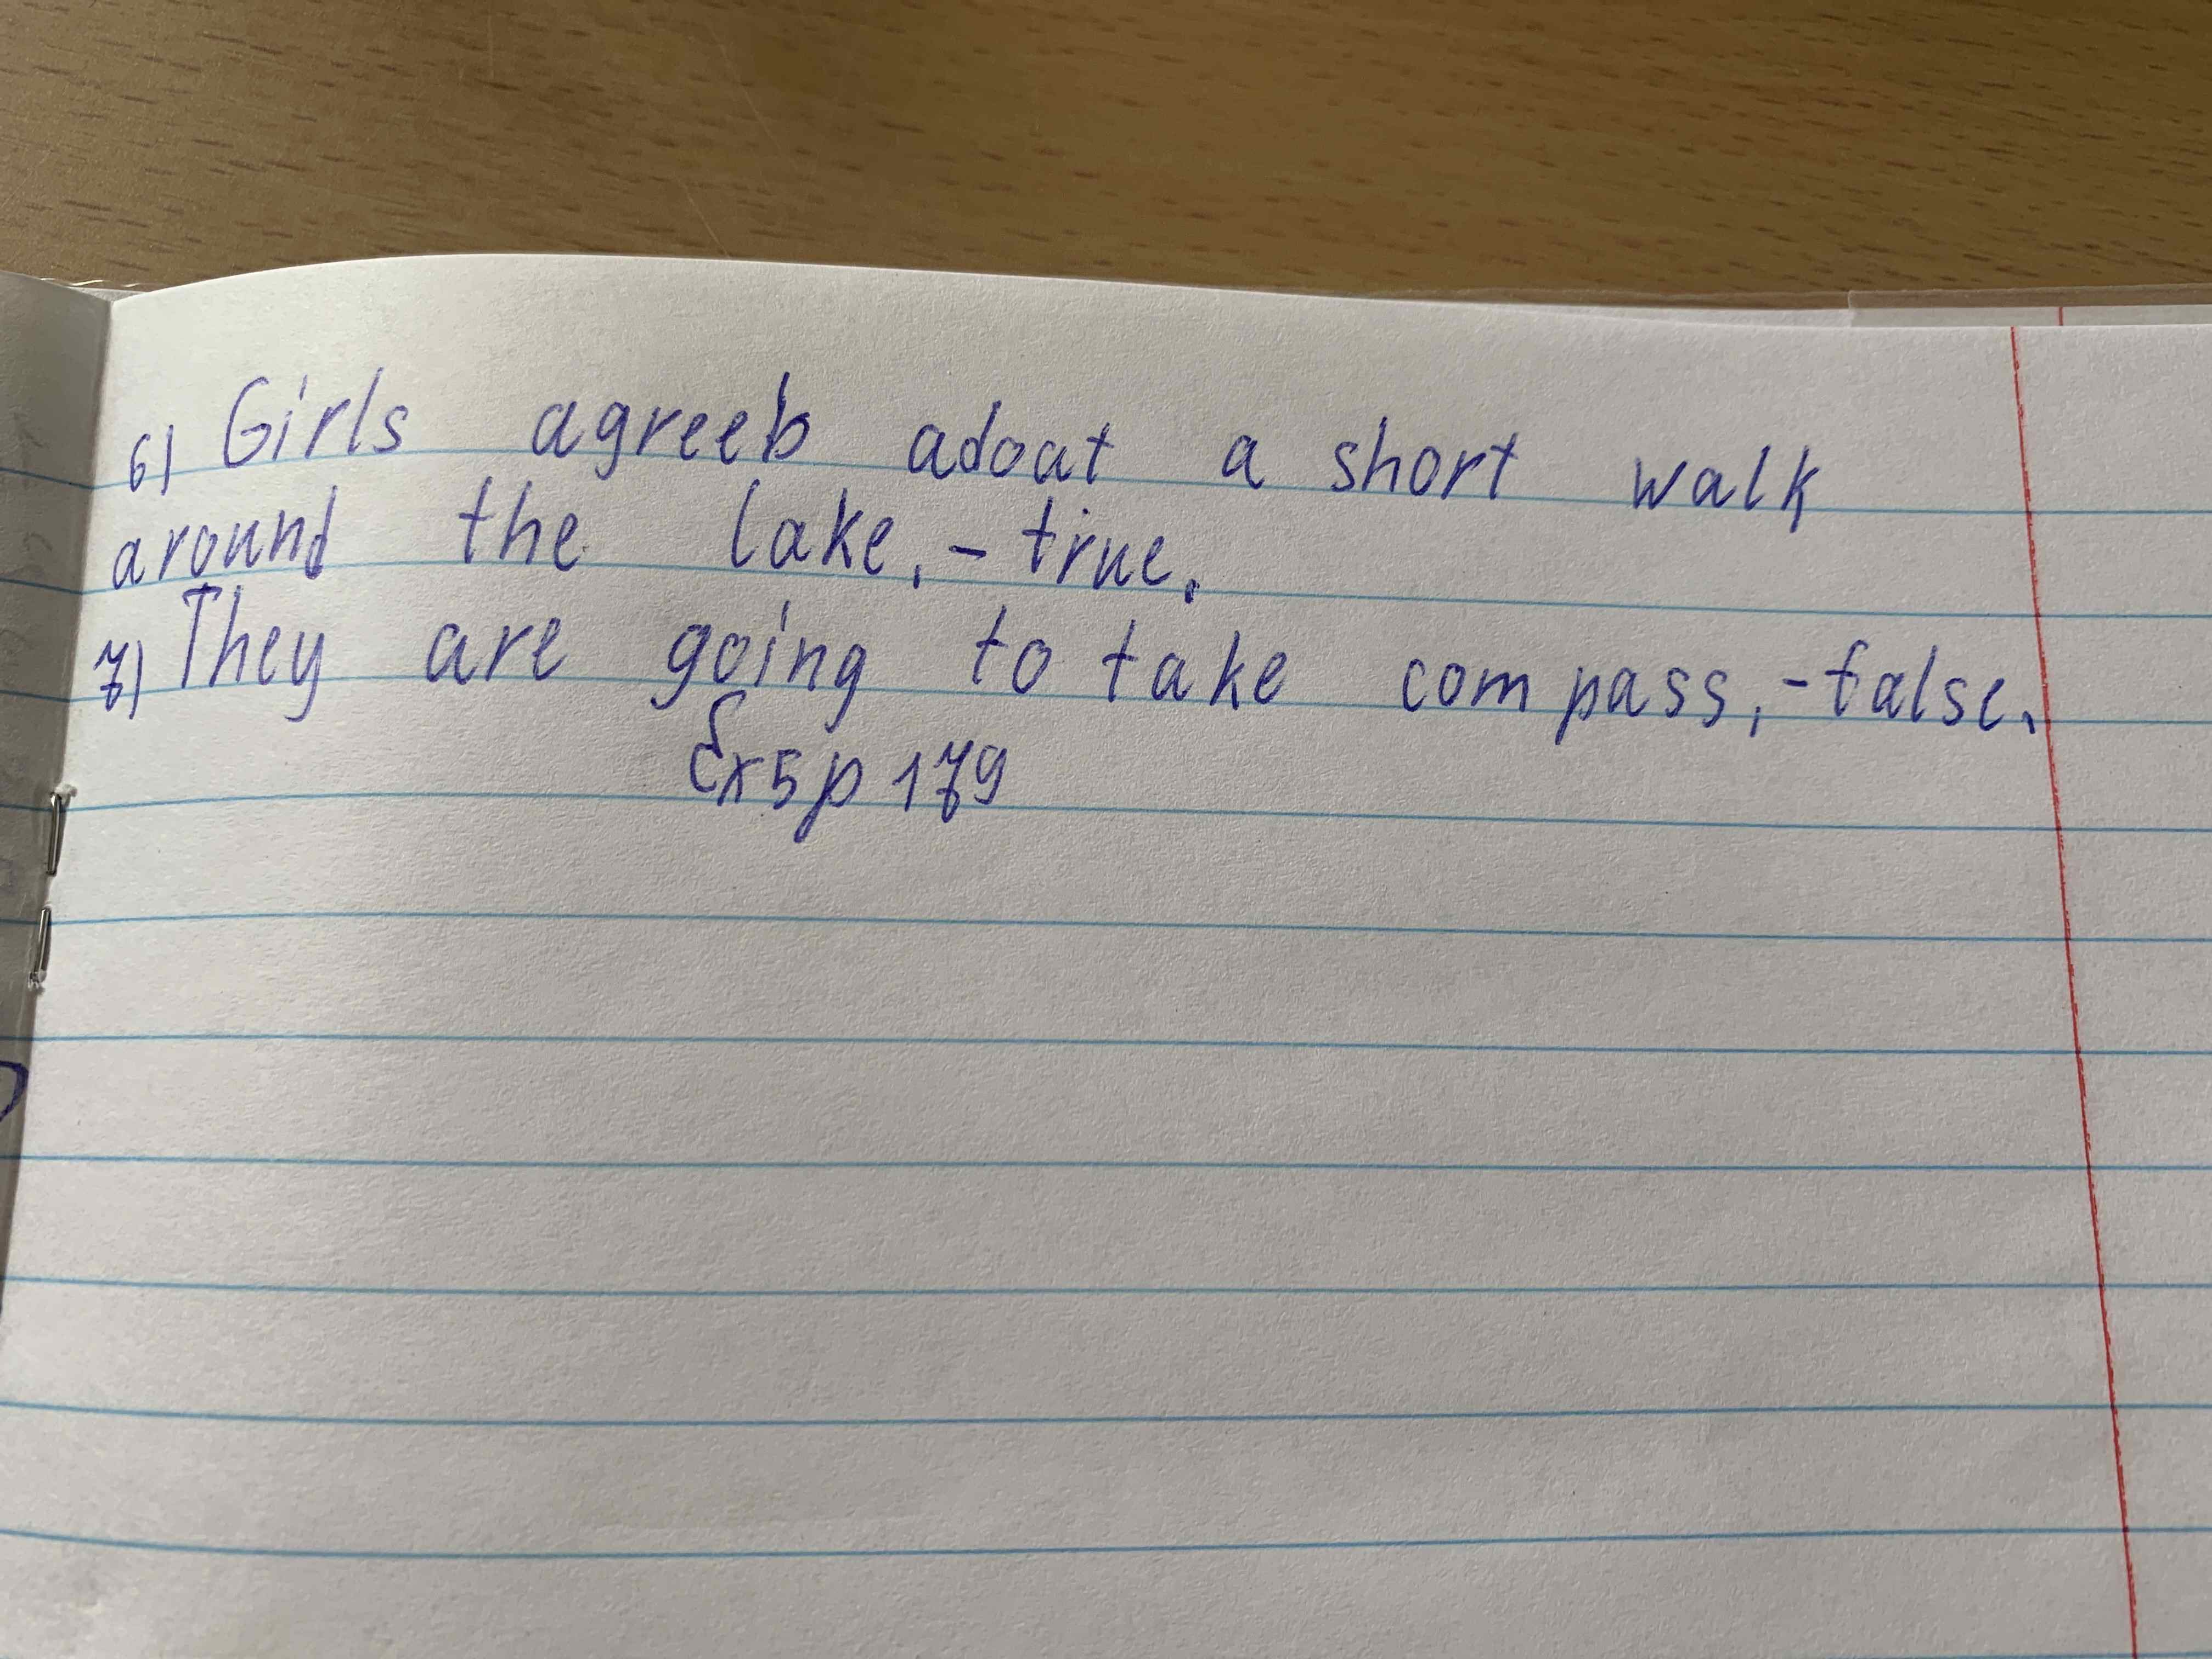 6) Girls agreeb adoat a short walk
around the lake, - true.
7) They are going to take compass, - false.
Ex 5 p 179